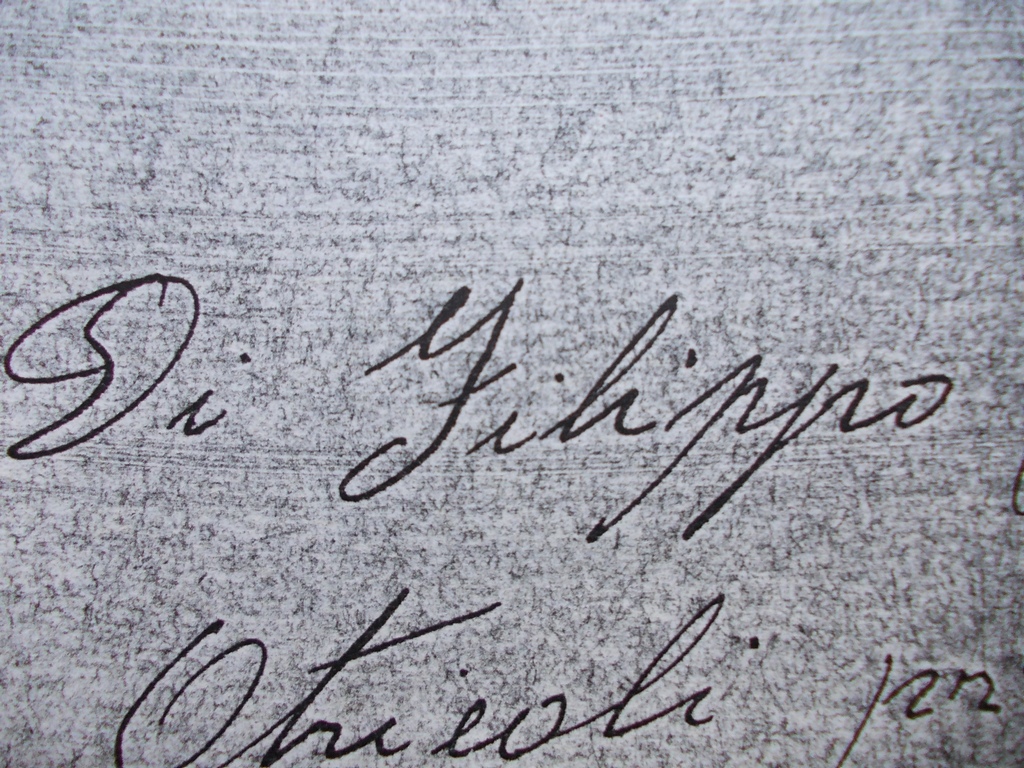 Di Filippo
Otricoli